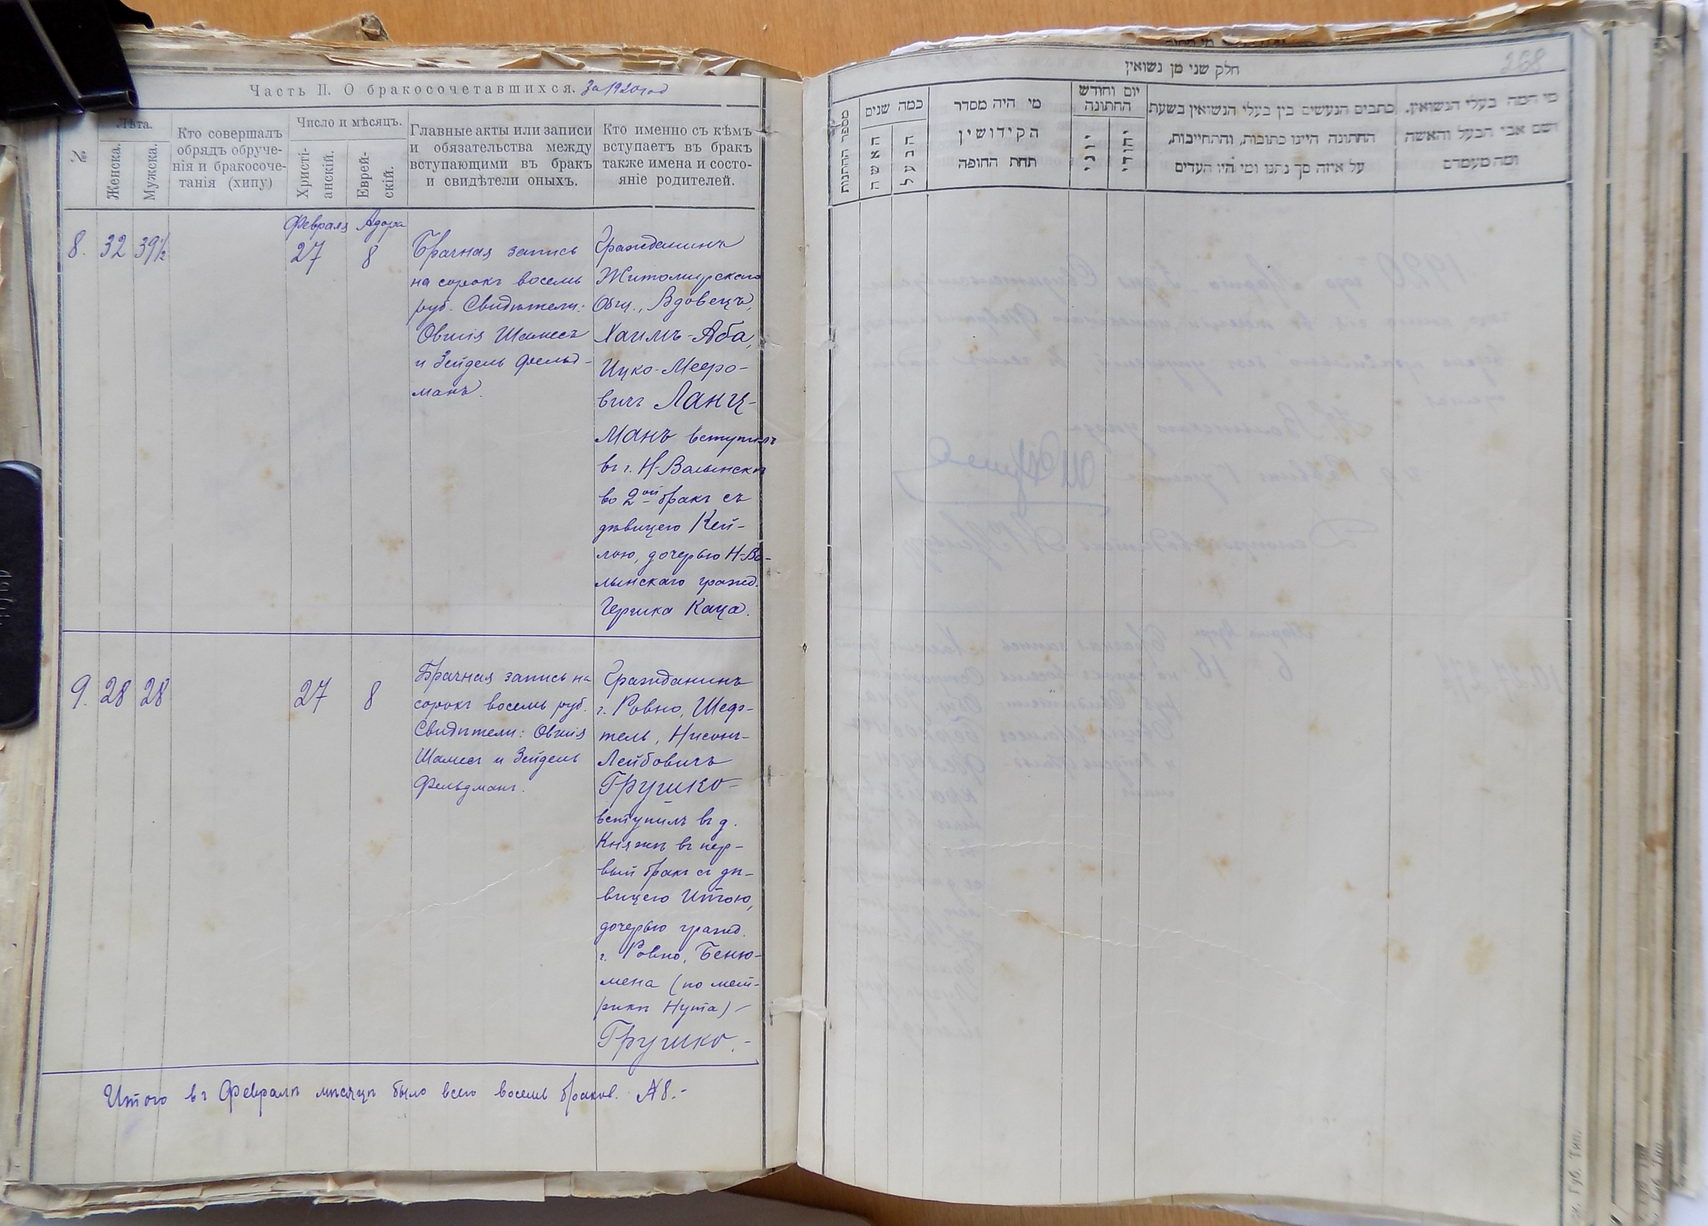 Часть II. О бракосочетавшихся. За 1920 год
№
Лѣта.
Женска.
Мужска.
Кто совершалъ
обрядъ обруче-
нія и бракосоче-
танія (хипу)
Число и мѣсяцъ.
Христі-
анскій.
Еврей-
скій.
Главные акты или записи
и обязательства между
вступающими въ бракъ
и свидѣтели оныхъ.
Кто именно съ кѣмъ
вступаетъ въ бракъ
также имена и состо-
яніе родителей.
8.
32
39½
Февраля
27
Адора
8
Брачная запись
на сорокъ восемь
руб. Свидѣтели:
Овшія Шамесъ
и Зейдель Фельд-
манъ.
Гражданинъ
Житомирскаго
Общ., Вдовецъ,
Хаимъ-Аба,
Ицко-Мееро-
вичъ Ланц-
манъ вступилъ
въ г. Н-Волынскѣ
во 2ой бракъ съ
дѣвицею Кей-
лою, дочерью Н-Во-
лынскаго гражд.
Гершка Каца.
9.
28
28
27
8
Брачная запись на
сорокъ восемь руб.
Свидѣтели: Овшія
Шамесъ и Зейдель
Фельдманъ.
Гражданинъ
г. Ровно, Шеф-
тель, Нисонъ-
Лейбовичъ
Грушко
вступилъ въ д.
въ пер-
вый бракъ съ дѣ-
вицею Итою,
дочерью гражд.
г. Ровно, Беню-
мена (по мет-
рикѣ Нута)
Грушко.-
Итого въ Февралѣ мѣсяцѣ было всего восемь браковъ. №8.-
268
חלק שני מן נשואין
מספר החתונות
כמה שנים
האשה
הבעל
מי היה מסדר
הקידושין
תחת החופה
יום וחודש
החתונה
יוני
יהודי
כתבים הנעשים בין בעלי הנשואין בשעת
החתונה היינו כתובות, והתחייבות,
על איזה סך נתנו ומי היו העדים
מי המה בעלי הנשואין.
ושם אבי הבעל והאשה
ומה מעמדם